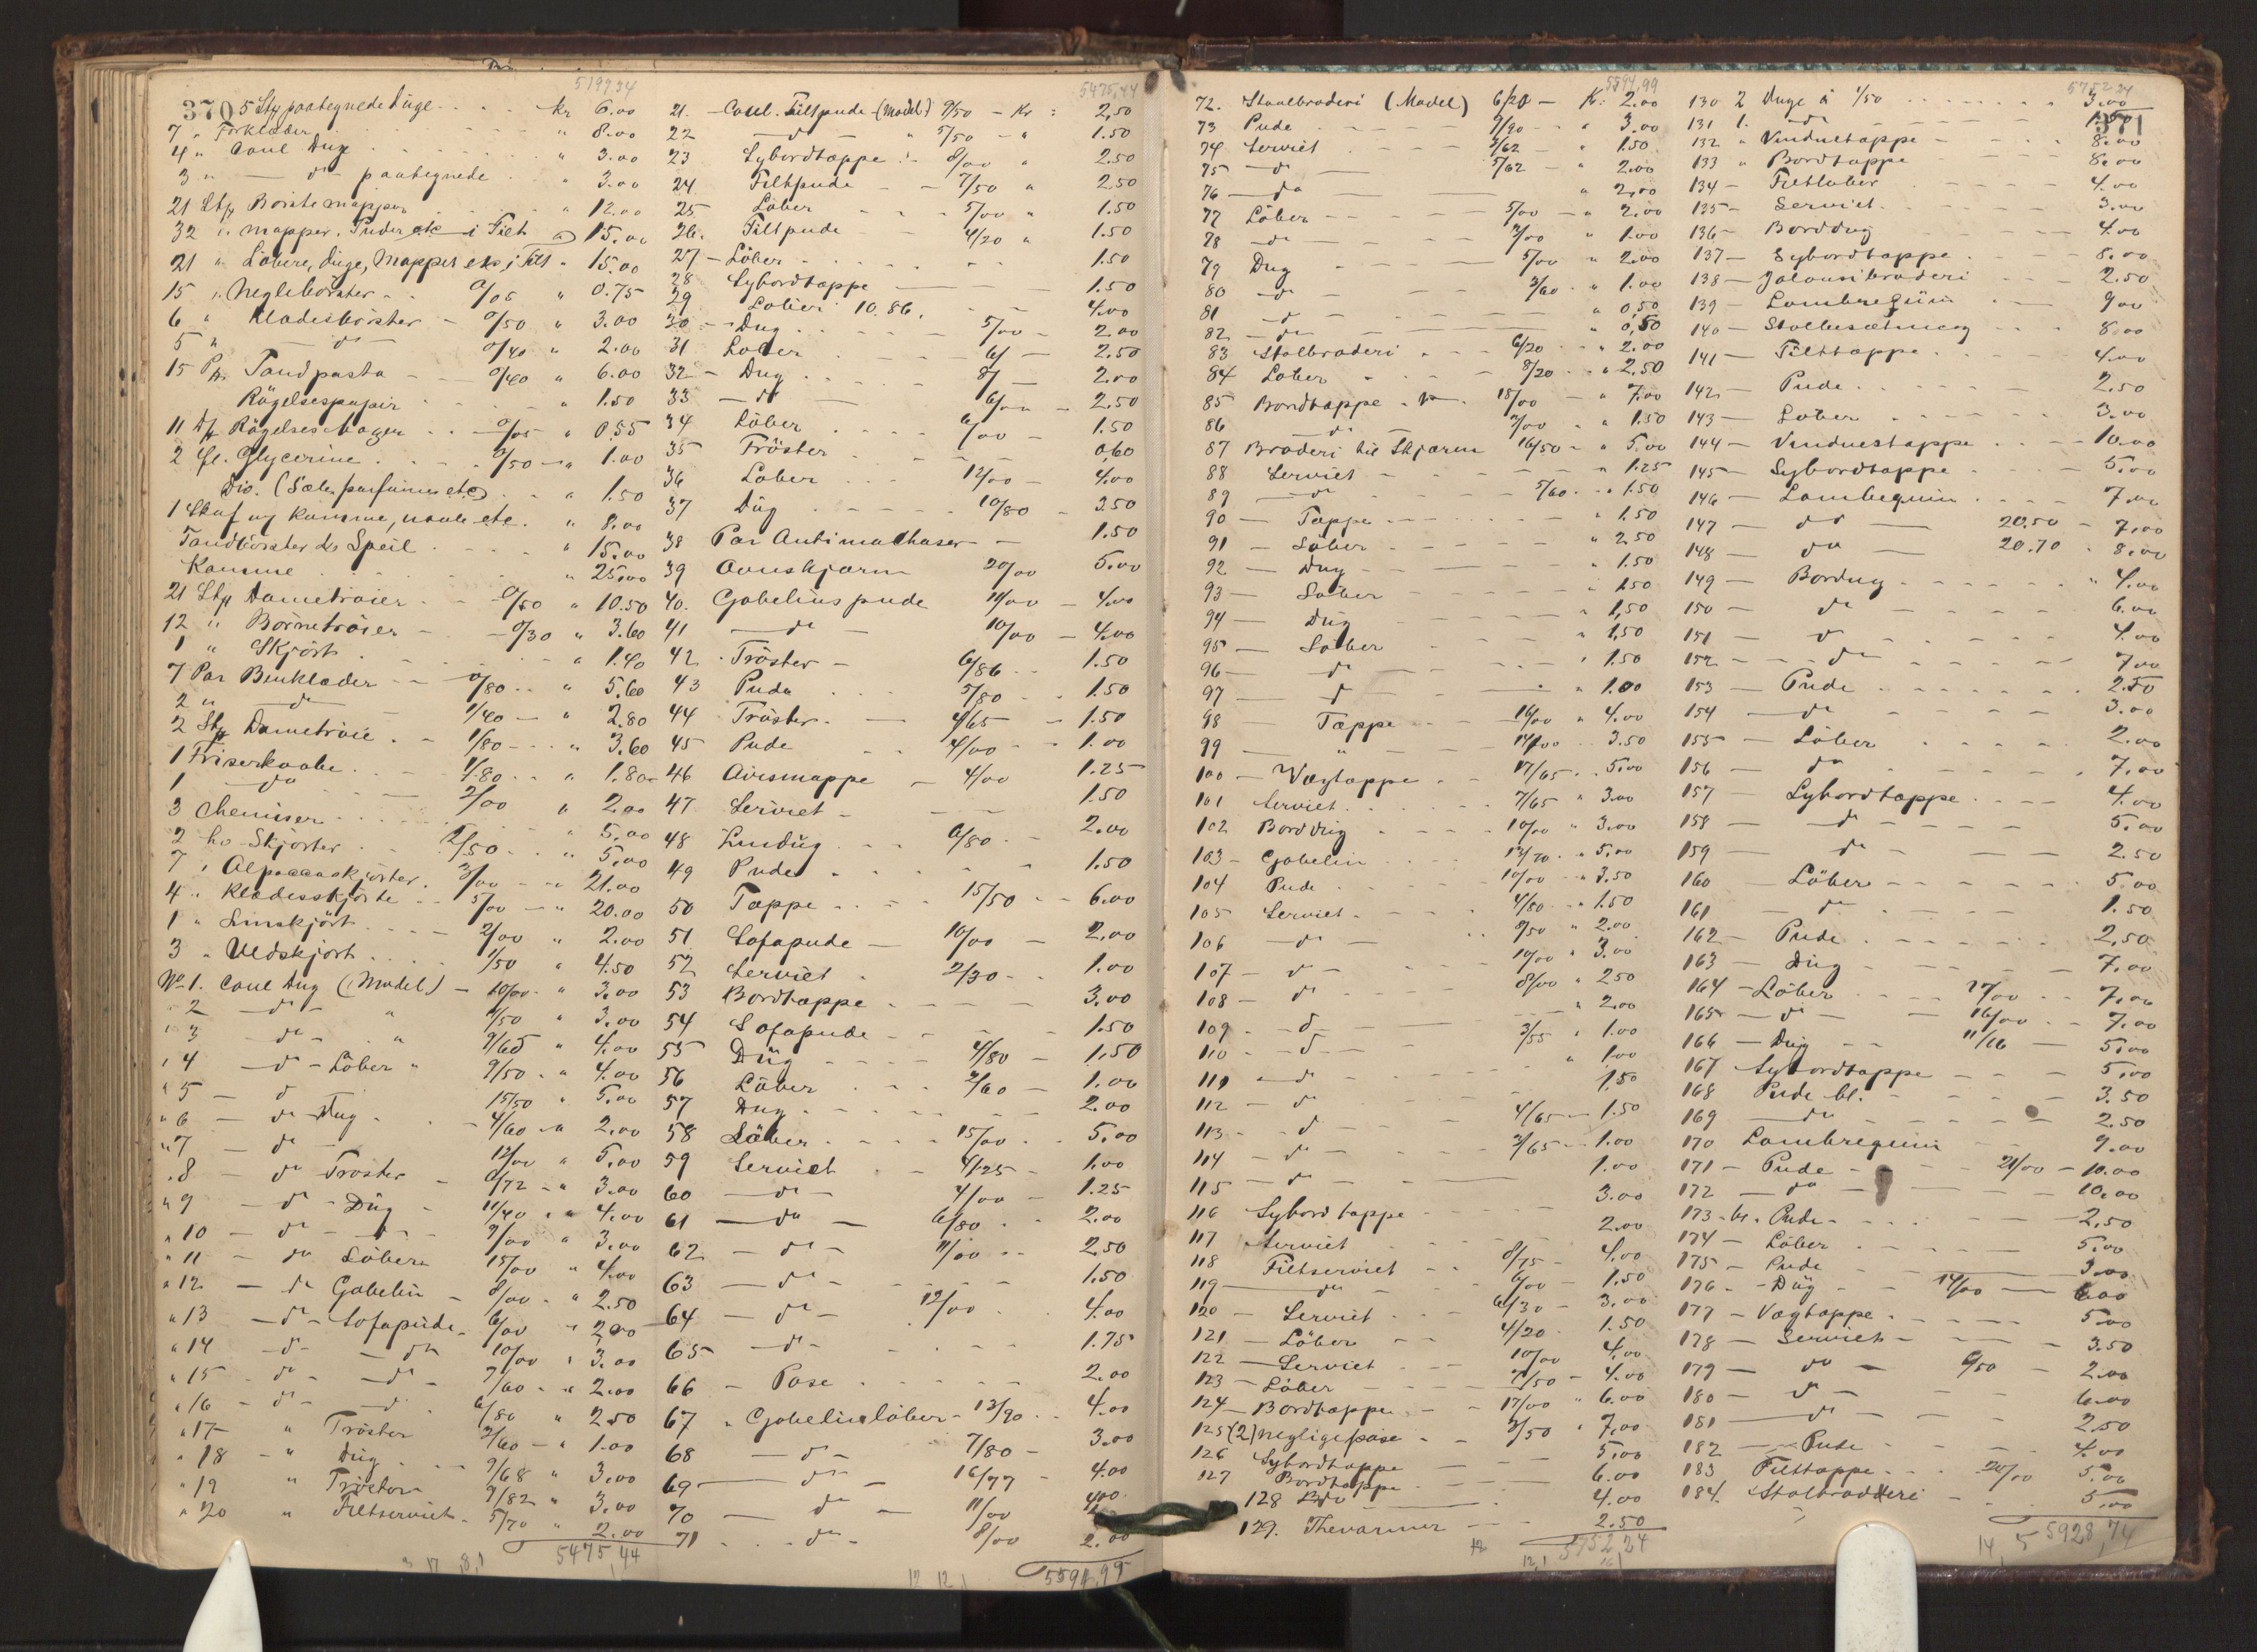 370
5199,34
5 Stk paategnede Duge kr 6.00
7 " Forklæder " 8.00
4 " Caul Dug " 3.00
3 " — do paategnede " 3.00
21 Stk Börstemapper " 12.00
32 " Mapper, Puder etc i Filt 15.00
21 " Löbere, Duge, Mapper etc i Filt " 15.00
15 " Negleborster 0/05 " 0.75
6 " Klædesbörster 0/50 " 3.00
5 " — do 0/40 " 2.00
15 Pk. Tandpasta 0/40 " 6.00
Rögelsespapir " 1.50
11 Rögelses 0/05 " 0.55
2 fl. Glycerine 0/50 " 1.00
Div. (Sæbe, parfumer etc) " 1.50
1 Skuf og Kamme, naale etc. " 8.00
Tandbörster do Speil " 15.00
Kamme " 25.00
21 Stk Dametröier 0/50 " 10.50
12 " Börnetröier 0/30 " 3.60
1 " Skjört " 1.40
7 Par Benklæder 0/80 " 5.60
2 " do 1/40 " 2.80
2 Stk Dametröie 1/80 " 3.60
1 Friserkaabe 1/80 " 1.80
1 do 2/00 " 2.00
3 Chemiser " 5.00
2 ho Skjorter 2/50 " 5.00
7 " Alpaccaskjörter 3/00 " 21.00
4 " Klædesskjörte 5/00 " 20.00
1 " Linskjört 2/00 " 2.00
3 " Uldskjört 1/50 " 4.50
No 1. Caul Dug (Model) 10/00 " 3.00
" 2 — do — " 9/50 " 3.00
" 3 do — " 9/65 " 4.00
" 4 — do — Löber " 9/50 " 4.00
" 5 — d 15/50 " 5.00
" 6 — do Dug 4/60 " 2.00
" 7 — do — 12/00 " 5.00
" 8 — do Tröster 6/72 " 3.00
" 9 — do — Dug 11/40 " 4.00
" 10 — do — do 9/00 " 3.00
" 11 — do Löber 15/00 " 4.00
" 12 — do Gobelin 8/00 " 2.50
" 13 — do — Sofapude 6/00 " 2.00
" 14 — do — do 10/00 " 3.00
" 15 do — do — 7/60 " 2.00
" 16 — do — d 6/80 " 2.50
" 17 " Tröster 2/60 " 1.00
" 18 — " Dug 9/68 " 3.00
" 19 " Tröster 9/82 " 3.00
" 20 " Filtserviet 5/70 " 2.00
5475,44
5475,44
21. Caul. Filtpude (Model) 9/50 — Kr: 2,50
22 — do — " 5/50 — " 1.50
23 Sybordtæppe 8/00 " 2.50
24. Filtpude 7/50 " 2,50
25 Löber 5/00 " 1.50
26. Filtpude 4/20 " 1.50
27 — Löber 1.50
28 Sybordtæppe 1.50
29 Löber 10.86. 4.00
30 — Dug 5/00 — 2.00
31 Löber 6/ — 2.50
32 — Dug 8/ — 2.00
33 — do 6/00 — 2.50
34 Löber 6/00 — 1.50
35 Tröster 0,60
36 Löber 12/00 — 4.00
37 Dug 10/80 — 2.50
38 Par Antimachaser 1.50
39 Ovnskjærm 20/00 5.00
40. Gobelins pude 11/00 — 4.00
41 — do — 10/00 — 4.00
42 Tröster 6/86 1.50
43 Pude 5/80 1.50
44 Tröster 4/65 — 1.50
45 Pude 4/00 1.00
46 Avismappe 4/00 1.25
47 Serviet 1.50
48 Lindug 6/80 2.00
49 Pude 1.50
50 Tæppe 15/50 6.00
51 Sofapude — 10/00 — 2.00
52 Serviet 2/30 1.00
53 Bordtæppe 3.00
54 Sofapude 1.50
55 Dug 4/80 — 1,50
56 Löber 2/60 — 1.00
57 Dug 2.00
58 Löber 15/00 5.00
59 Serviet 4/25 — 1.00
60 — do — 4/00 1.25
61 — do — 6/80 2.00
62 — do — 9/00 2,50
63 — do 1.50
64 — do — 12/00 4.00
65 — do 1.75
66 — Pose 2.00
67 " Gobelinslöber 13/90 4.00
68 — do — 7/80 — 3.00
69 — do — 16/77 4.00
70 — do — 11/00 4.00
71 do — 8/00 2.00
5594,99
5594,99
72. Staalbroderi (Model) 6/20 — Kr. 2.00
73 Pude 7/90 — " 3.00
74 Serviet 2/62 — " 1.50
75 — do — 5/62 " 2.00
76 — do " 2.00
77 Löber 5/00 " 2.00
78 — do — 3/00 " 1.00
79 Dug 5/00 " 2.00
80 — do — 3/60 " 1.00
81 — d " 0,50
82 — do — " 0,50
83 Stolbroderi 6/20 " 2.00
84 Löber 8/20 " 2,50
85 Bordtæppe 18/00 " 7.00
86 — do 3/00 " 1.50
87 Broderi til Skjærm 16/50 — " 5.00
88 Serviet " 1.25
89 — do 5/60 " 1.50
90 — Tæppe " 1.50
91 — Löber " 2.50
92 — Dug " 1.50
93 — Löber 1.50
94 — Dug " 1,50
95 — Löber " 1,50
96 — do " 1.50
97 — d " 1.00
98 — Tæppe 16/00 " 4.00
99 — " 14/00 3.50
100 — Vægtæppe 17/65 5.00
101 Serviet 7/65 " 3.00
102 Borddug 10/00 " 3.00
103 — Gobelin 13/70 " 5,00
104 Pude 10/00 " 3.50
105 Serviet 4/80 " 1.50
106 — do — 9/50 " 2.00
107 — do — 10/00 " 3.00
108 — do 8/00 " 2.50
109 — d — " 2.00
110 — d — 3/55 " 1.00
111 — do " 1.00
112 — do 1,50
113 — d 4/65 — 1.50
114 — do — 3/65 — 1.00
115 — do — 1.00
116 Sybordtæppe 3.00
117 Serviet 2.00
118 Filtserviet 8/75 — 4.00
119 — do 6/00 — 1.50
120 — Serviet 6/30 — 3.00
121 — Löber 4/20 1.50
122 — Serviet 10/00 4.00
123 — Löber 7/50 — 4.00
124 — Bordtæppe 17/00 " 6.00
125 (2) negligepose 3/50 " 7,00
126 Sybordtæppe 5,00
127 Bordtæppe 6.00
128 do 4.00
129. Thevarmer 2.50
5752,24
371
5752,24
130 2 Duge á 1/50 3.00
131 1. do 1.50
132 " Vinduetæppe 8.00
133 " Bordtæppe 8.00
134 — Filtlöber 4.00
135 — Serviet 3.00
136 — Borddug 4.00
137 — Sybordtæppe 8.00
138 — Jalousibroderi 2.50
139 — Lambrequin 9.00
140 — Stolbesætning 8.00
141 — Filttæppe 4.00
142 — Pude 2.50
143 — Löber 3.00
144 — Vinduestæppe 10.00
145 — Sybordtæppe 5.00
146 — Lambequin 7.00
147 — do — 20.50 — 7.00
148 — do — 20.70 8.00
149 — Bordug " 4.00
150 — do 6.00
151 — d 4.00
152 — do 7.00
153 — Pude 2.50
154 — do 3.00
155 — Löber 2.00
156 — do 7.00
157 — Sybordtæppe 4.00
158 — do 5.00
159 — do — 2.50
160 — Löber 5.00
161 — do — 1.50
162 — Pude 2,50
163 — Dug 7.00
164 — Löber 17/00 7.00
165 — do — 16/00 7.00
166 — Dug 11/66 — 5,00
167 Sybordtæppe 5,00
168 Pude bl. 3.50
169 — do 2.50
170 Lambrequin 9.00
171 — Pude 21/00 — 10.00
172 — do — 10.00
173 — bl. Pude 2,50
174 — Löber 5.00
175 — Pude 3.00
176 — Dug 14/00 — 6.00
177 — Vægtæppe 5.00
178 — Serviet 3.50
179 — do — 6/50 — 2.00
180 — do — 6.00
181 — do 2.50
182 — Pude 4.00
183 Filttæppe 20/00 5.00
184. Stolbroderi 5,00
5928,74